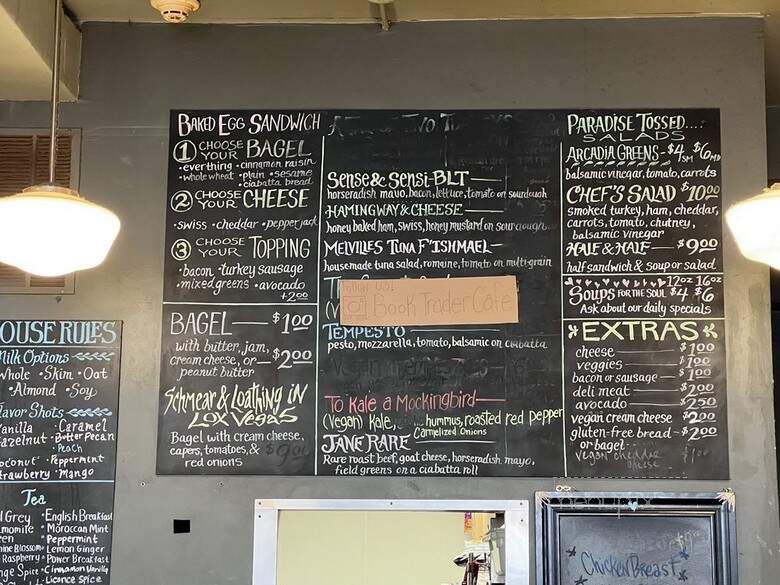 BAKED EGG SANDWICH
1 CHOOSE YOUR BAGEL
• everthing • cinnamon raisin
• whole wheat • plain • sesame
ciabatta bread
2 CHOOSE YOUR CHEESE
• swiss • cheddar • pepperjack
3 CHOOSE YOUR TOPPING
• bacon • turkey sausage
• mixed greens • avocado
+2.00
BAGEL — $1.00
with butter, jam,
cream cheese, or — $2.00
peanut butter
Schmear & Loathing in
LOX VEGAS
Bagel with cream cheese,
capers, tomatoes, &
red onions
Sense & Sensi-BLT —
horseradish mayo, bacon, lettuce, tomato on sourdough
HAMINGWAY & CHEESE —
honey baked ham, swiss, honey mustard on sourdough
MELVILLES TUNA F'ISHMAEL —
housemade tuna salad, romaine, tomato on multi-grain
Book Trader Cafe
TEMPESTO
pesto, mozzarella, tomato, balsamic on ciabatta
To Kale a Mockingbird —
(Vegan) Kale, hummus, roasted red pepper
Carmelized Onions
JANE RARE
Rare roast beef, goat cheese, horseradish mayo,
field greens on a ciabatta roll
PARADISE TOSSED....
SALADS
ARCADIA GREENS - $4 SM $6 MD
balsamic vinegar, tomato, carrots
CHEF'S SALAD $10.00
smoked turkey, ham, cheddar,
carrots, tomato, chutney,
balsamic vinegar
HALF & HALF — $9.00
half sandwich & soup or salad
12oz 16oz
SOUPS FOR THE SOUL $4 $6
Ask about our daily specials
EXTRAS
cheese — $1.00
veggies — $1.00
bacon or sausage — $1.00
deli meat — $2.00
avocado — $2.50
vegan cream cheese $2.00
gluten-free bread - $2.00
or bagel
vegan cheddar
cheese $1.00
OUSE RULES
Milk Options
Whole • Skim • Oat
• Almond • Soy
lavor Shots
Vanilla • Caramel
Hazelnut • Butter Pecan
• Peach
coconut • Peppermint
Strawberry • Mango
Tea
l Grey • English Breakfast
momile • Moroccan Mint
een • Peppermint
Blossom • Lemon Ginger
Raspberry • Power Breakfast
nge Spice • Cinnamon Vanilla
• Licorice Spice
Chicken Breast